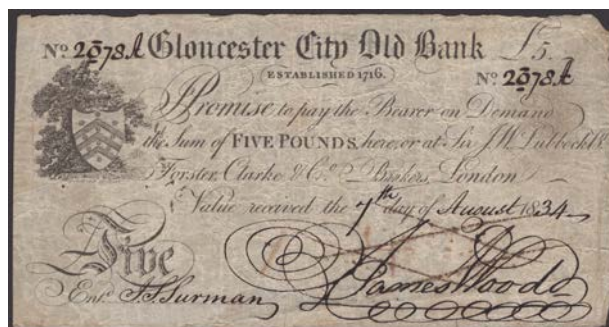 No 2078 A Gloucester City Old Bank £5.
ESTABLISHED 1716.
No 2078 A
I Promise to pay the Bearer on Demand
the Sum of FIVE POUNDS, here, or at Sir J. W. Lubbock Bt
Forster, Clarke & Co. Bankers, London
Value received the 7th day of August 1834
Five
Entd J. S. Surman James Wood